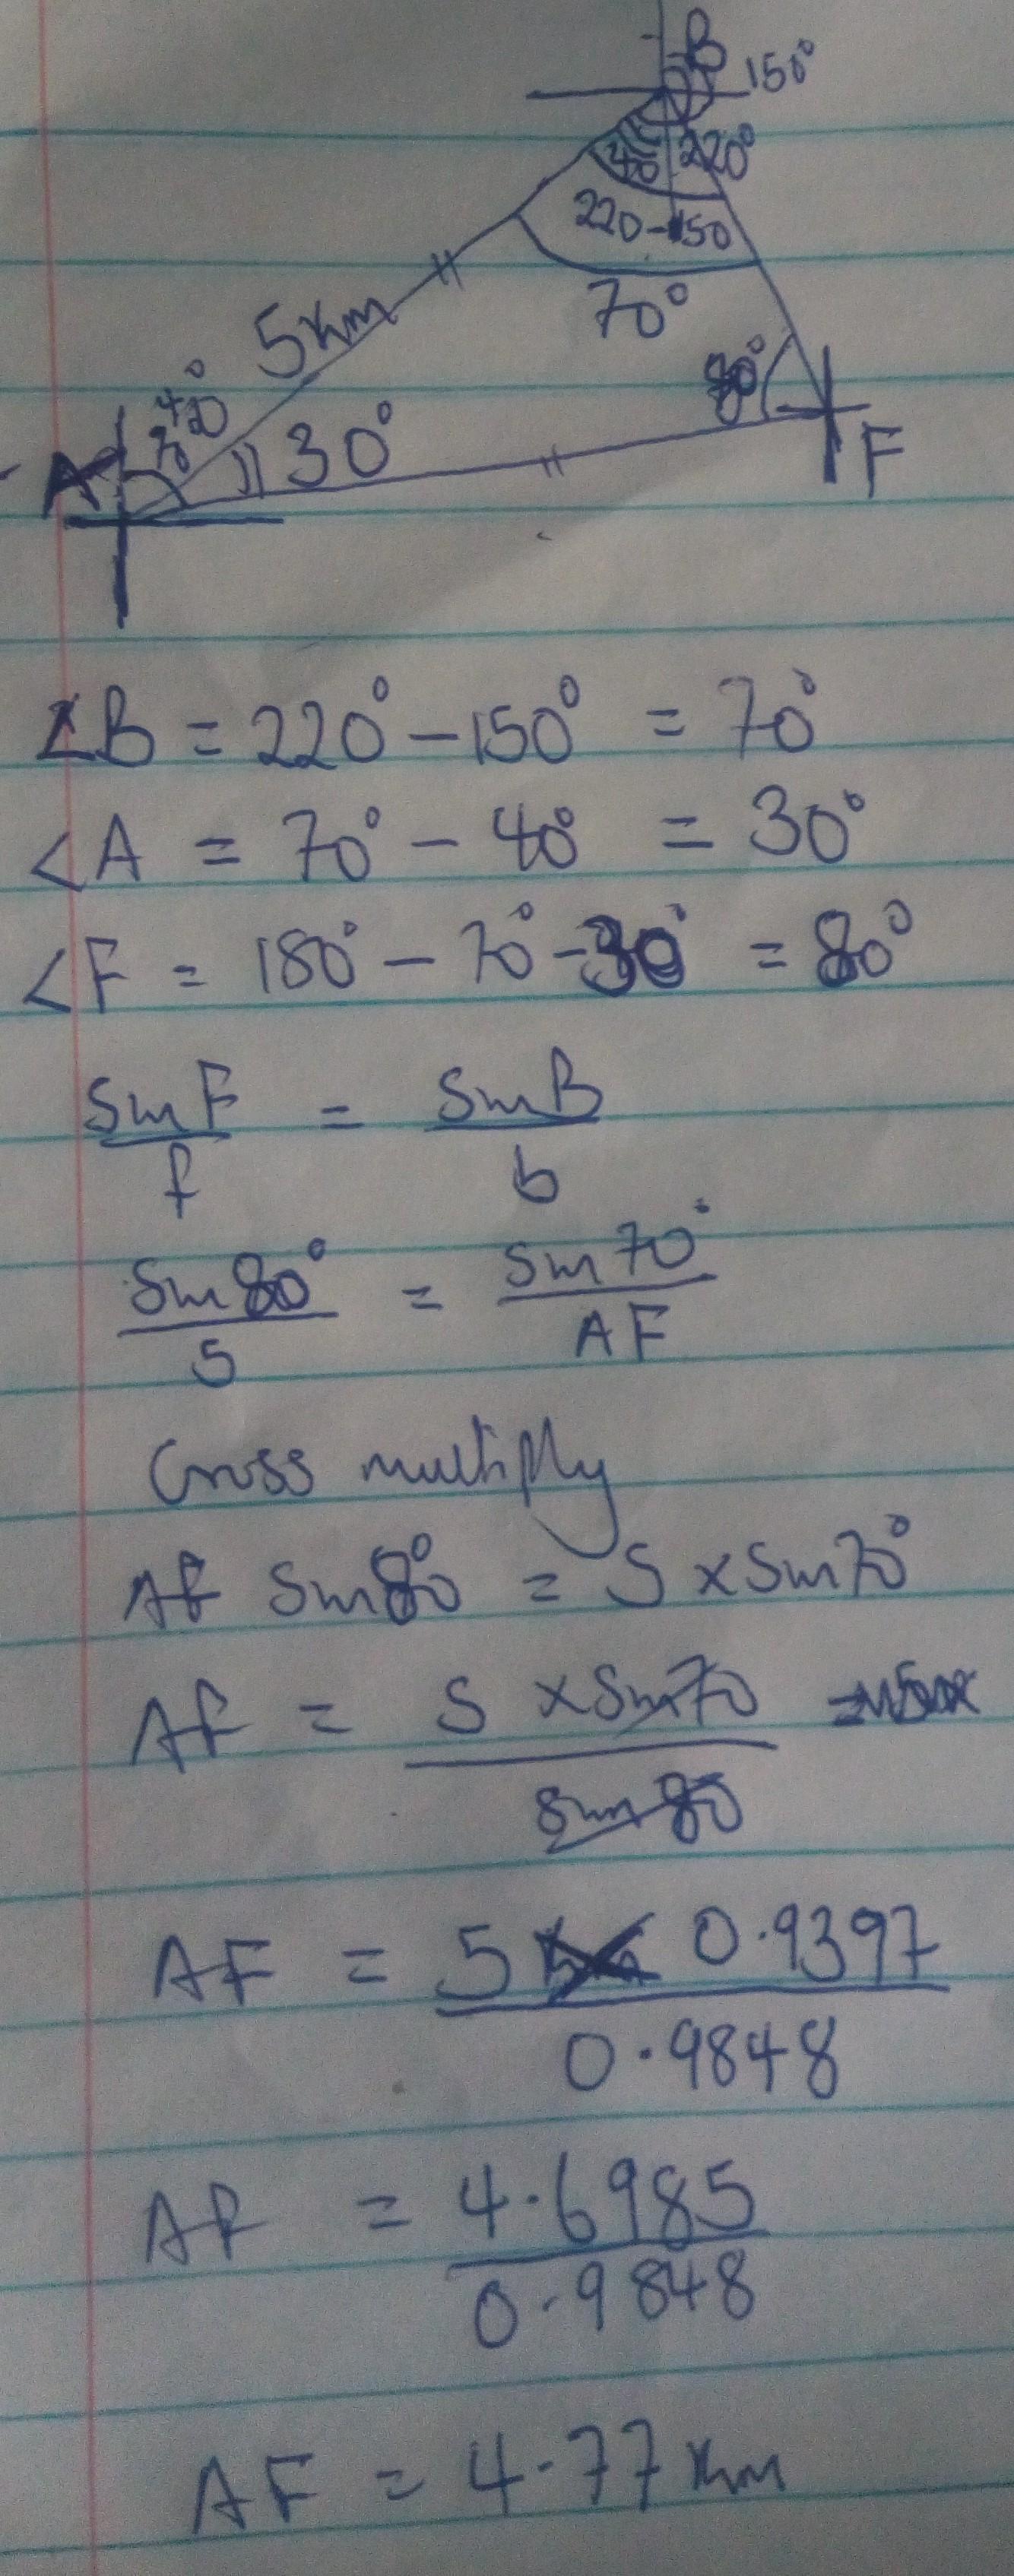 B
150°
40 220°
220-150
70°
5km
40°
70°
80°
A
30°
F
∠B = 220° - 150° = 70°
∠A = 70° - 40° = 30°
∠F = 180° - 70° - 30° = 80°
Sin F / f = Sin B / b
Sin 80° / 5 = Sin 70° / AF
Cross multiply
AF Sin 80° = 5 × Sin 70°
AF = 5 × Sin 70 / Sin 80
AF = 5 × 0.9397 / 0.9848
AF = 4.6985 / 0.9848
AF = 4.77 km